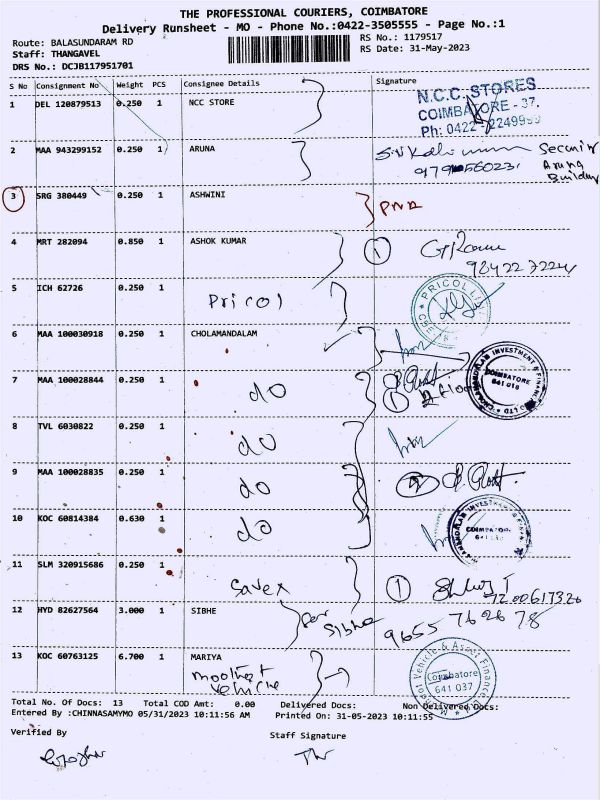 THE PROFESSIONAL COURIERS, COIMBATORE
Delivery Runsheet - MO - Phone No.:0422-3505555 - Page No.:1
Route: BALASUNDARAM RD
RS No.: 1179517
Staff: THANGAVEL
RS Date: 31-May-2023
DRS No.: DCJB117951701
S No Consignment No Weight PCS Consignee Details Signature
1 DEL 120879513 0.250 1 NCC STORE
N.C.C. STORES
COIMBATORE - 37.
Ph: 0422
2 MAA 943299152 0.250 1 ARUNA
Security
Aruna
Building
3 SRG 380449 0.250 1 ASHWINI
4 MRT 282094 0.850 1 ASHOK KUMAR
1
5 ICH 62726 0.250 1
Pricol
PRICOL
6 MAA 100030918 0.250 1 CHOLAMANDALAM
CHOLAMANDALAM INVESTMENT & FINANCE
COIMBATORE
641 018
7 MAA 100028844 0.250 1
do
1
8 TVL 6030822 0.250 1
do
9 MAA 100028835 0.250 1
do
10 KOC 60814384 0.630 1
do
11 SLM 320915686 0.250 1
Savex
1
7200617326
12 HYD 82627564 3.000 1 SIBHE
for Sibhe
9655 762678
13 KOC 60763125 6.700 1 MARIYA
vehicle
Vehicle & Asset Finance
Coimbatore
641 037
Total No. Of Docs: 13 Total COD Amt: 0.00 Delivered Docs: Non Delivered Docs:
Entered By :CHINNASAMYMO 05/31/2023 10:11:56 AM Printed On: 31-05-2023 10:11:55
Verified By
Staff Signature